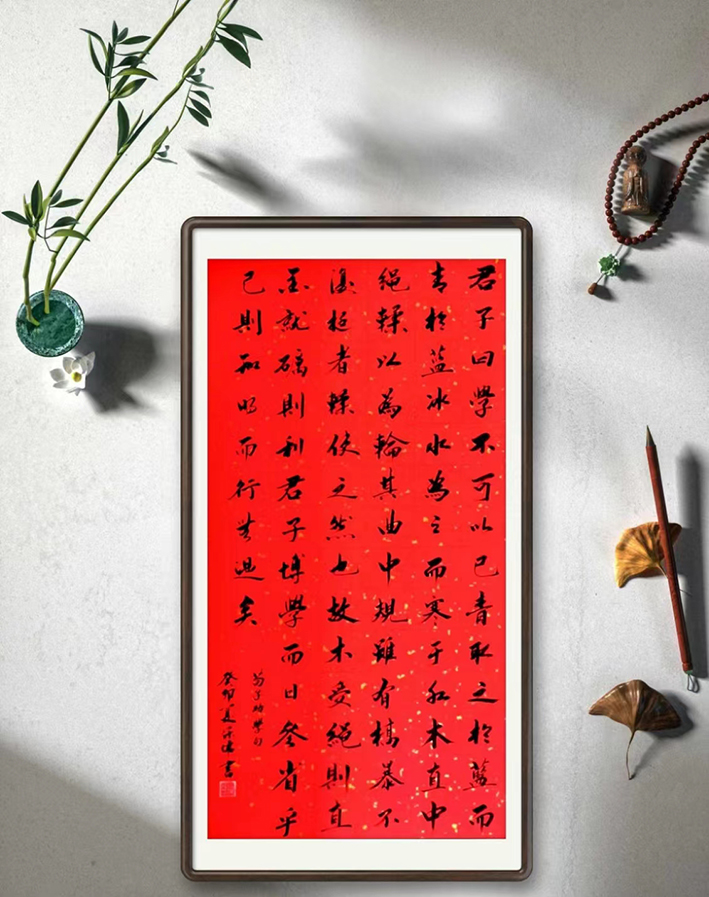 君子曰學不可以已青取之於藍而
青於藍冰水為之而寒于水木直中
繩輮以為輪其曲中規雖有槁暴不
復挺者輮使之然也故木受繩則直
金就礪則利君子博學而日參省乎
己則知明而行無過矣
荀子劝學句
癸卯夏書